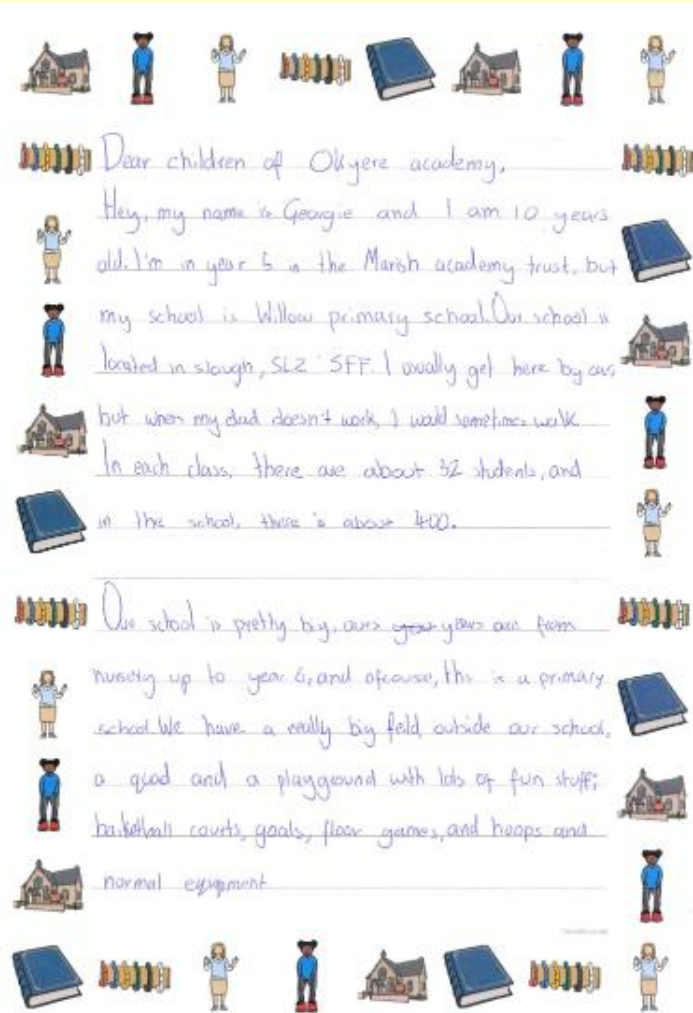 Dear children of Okyere academy,
Hey, my name is Georgie and I am 10 years
old. I'm in year 5 in the Marish academy trust, but
my school is Willow primary school. Our school is
located in slough, SL2 5FF. I usually get here by car,
but when my dad doesn't work, I would sometimes walk
In each class, there are about 32 students, and
in the school, there is about 400.
Our school is pretty big, ours years are from
nursery up to year 6, and ofcourse, this is a primary
school. We have a really big field outside our school,
a quad and a playground with lots of fun stuff;
basketball courts, goals, floor games, and hoops and
normal equipment